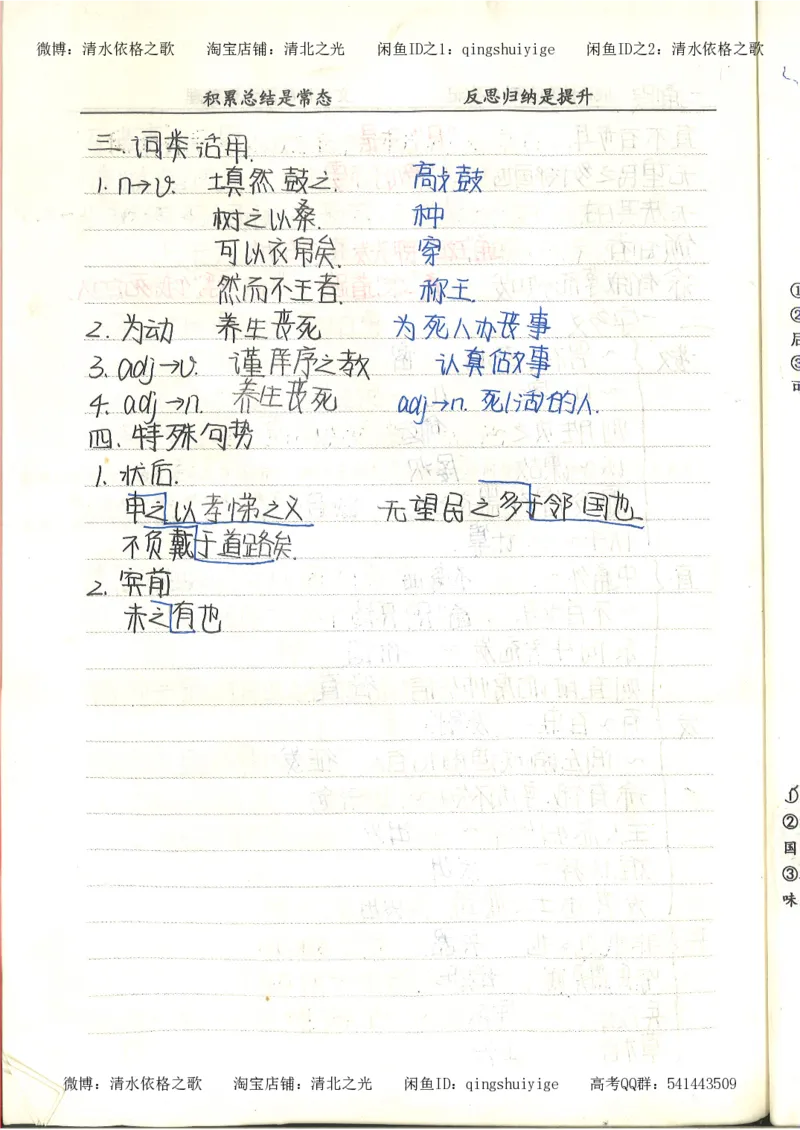 微博：清水依格之歌 淘宝店铺：清北之光 闲鱼ID之1：qingshuiyige 闲鱼ID之2：清水依格之歌
积累总结是常态 反思归纳是提升
三.词类活用.
1. n→v. 填然鼓之. 敲鼓
树之以桑. 种
可以衣帛矣. 穿
然而不王者. 称王.
2. 为动 养生丧死 为死人办丧事
3. adj→v. 谨庠序之教 认真做事
4. adj→n. 养生丧死 adj→n. 死/活的人.
四.特殊句势
1. 状后.
申之以孝悌之义 无望民之多于邻国也
不负戴于道路矣.
2. 宾前
未之有也
①
②
后
③
②
国
③
味
微博：清水依格之歌 淘宝店铺：清北之光 闲鱼ID：qingshuiyige 高考QQ群：541443509